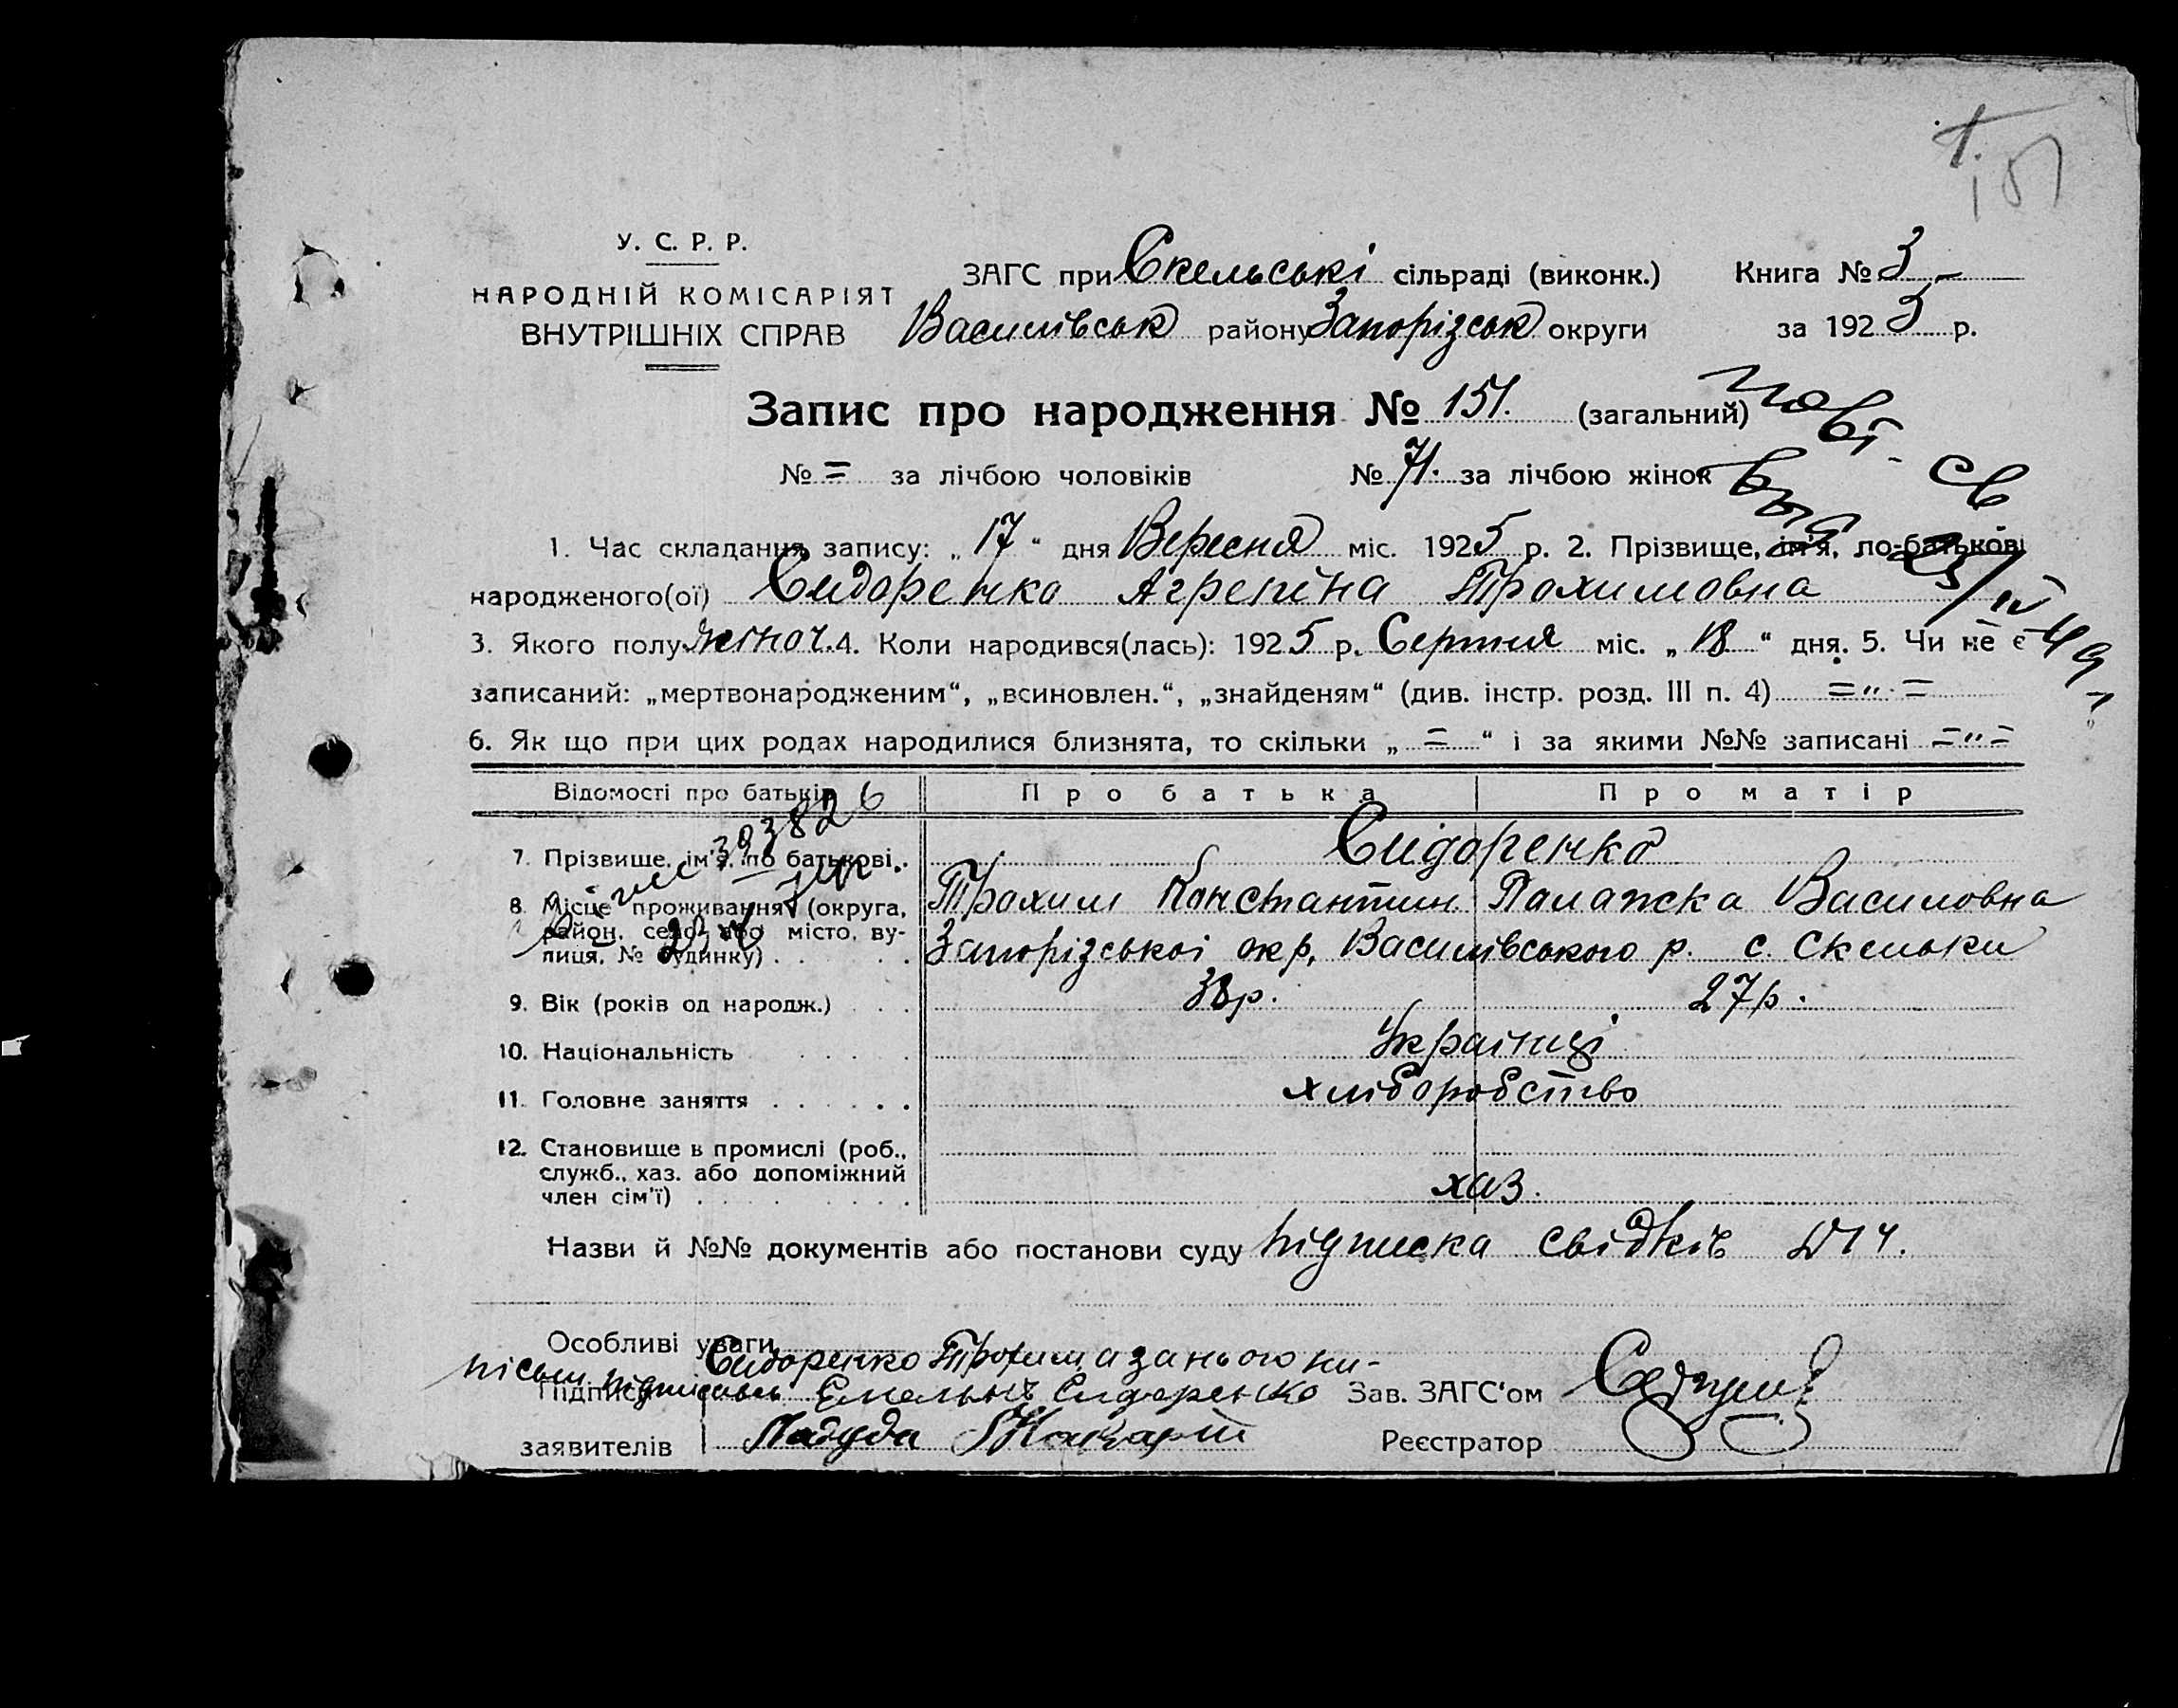 151
У. С. Р. Р.
НАРОДНІЙ КОМІСАРІЯТ
ВНУТРІШНІХ СПРАВ
ЗАГС при Скельські сільраді (виконк.) Книга № 3 –
Василівськ району Запорізськ округи за 192 5 р.
Запис про народження № 151. (загальний)
№ = за лічбою чоловіків № 71. за лічбою жінок
1. Час складання запису: „ 17 “ дня Вересня міс. 1925 р. 2. Прізвище, ім'я, по-батькові
народженого(ої) Сидоренко Агрепіна Трохимовна
3. Якого полу жіноч. 4. Коли народився(лась): 192 5 р. Серпня міс. „ 18 “ дня. 5. Чи не є
записаний: „мертвонародженим“, „всиновлен.“, „знайденям“ (див. інстр. розд. III п. 4) = „ =
6. Як що при цих родах народилися близнята, то скільки „ = “ і за якими №№ записані = „ =
Відомості про батьків Про батька Про матір
7. Прізвище, ім'я, по батькові. Сидоренко
Трохим Константин Палажка Василовна
8. Місце проживання (округа, район, село, або місто, вулиця, № будинку) Запорізськоі окр, Василівського р. с. Скельки
9. Вік (років од народж.) 38р. 27р.
10. Національність Украінці
11. Головне заняття хліборобство
12. Становище в промислі (роб.,
служб., хаз. або допоміжний
член сім'ї) хаз.
Назви й №№ документів або постанови суду підписка свідків
Особливі уваги
Сидоренко Трохим а за нього ни-
письм підписавсь Емельян Сидоренко
Підписи
Зав. ЗАГС'ом
заявителів
Реєстратор